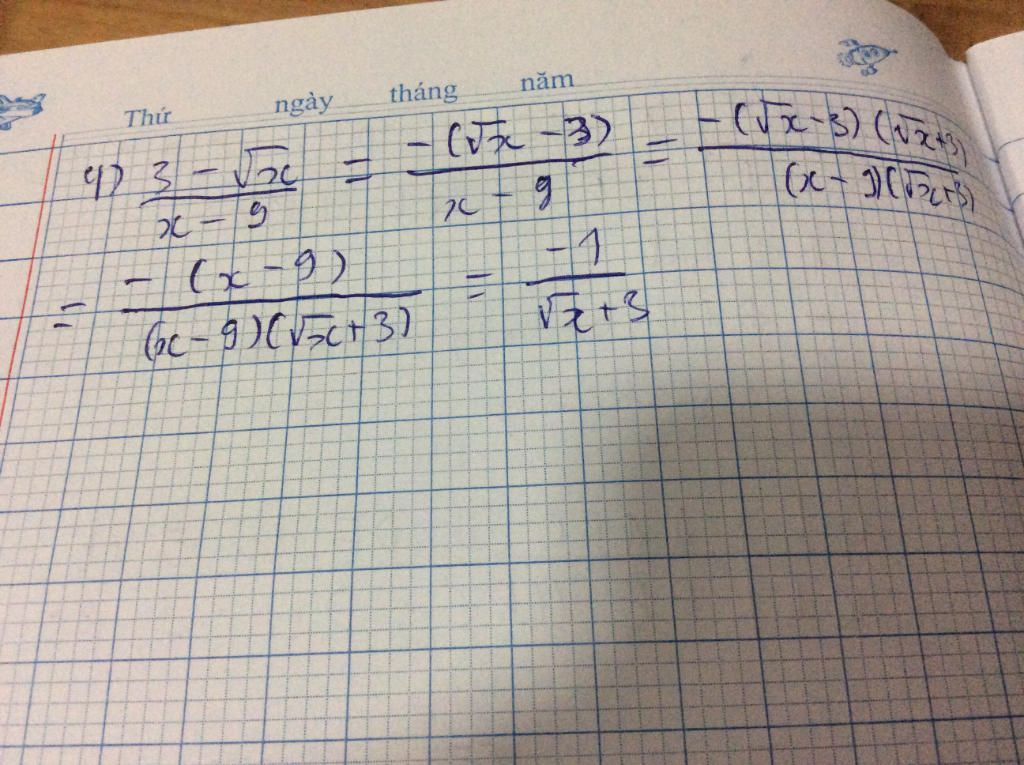 Thứ ngày tháng năm
4) \frac{3 - \sqrt{x}}{x - 9} = \frac{-(\sqrt{x} - 3)}{x - 9} = \frac{-(\sqrt{x} - 3)(\sqrt{x} + 3)}{(x - 9)(\sqrt{x} + 3)}
= \frac{-(x - 9)}{(x - 9)(\sqrt{x} + 3)} = \frac{-1}{\sqrt{x} + 3}